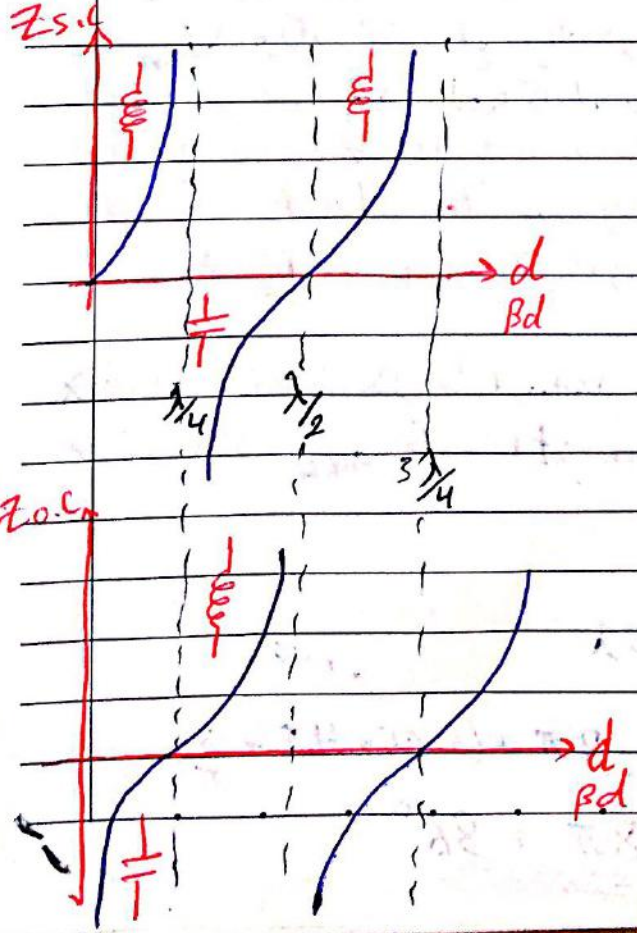 Zs.c
d
βd
λ/4
λ/2
3λ/4
Zo.c
d
βd